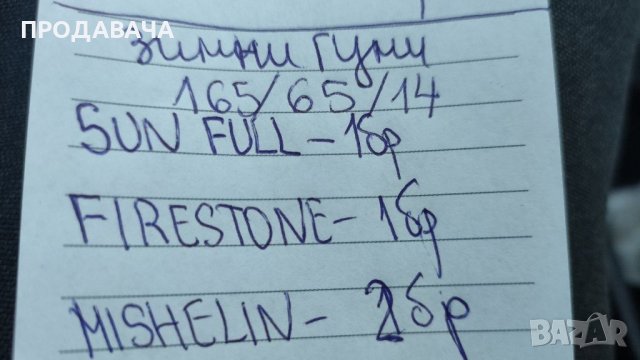 ПРОДАВАЧА
зимни гуми
165/65/14
SUN FULL - 1бр
FIRESTONE - 1бр
MISHELIN - 2бр
BAZAR